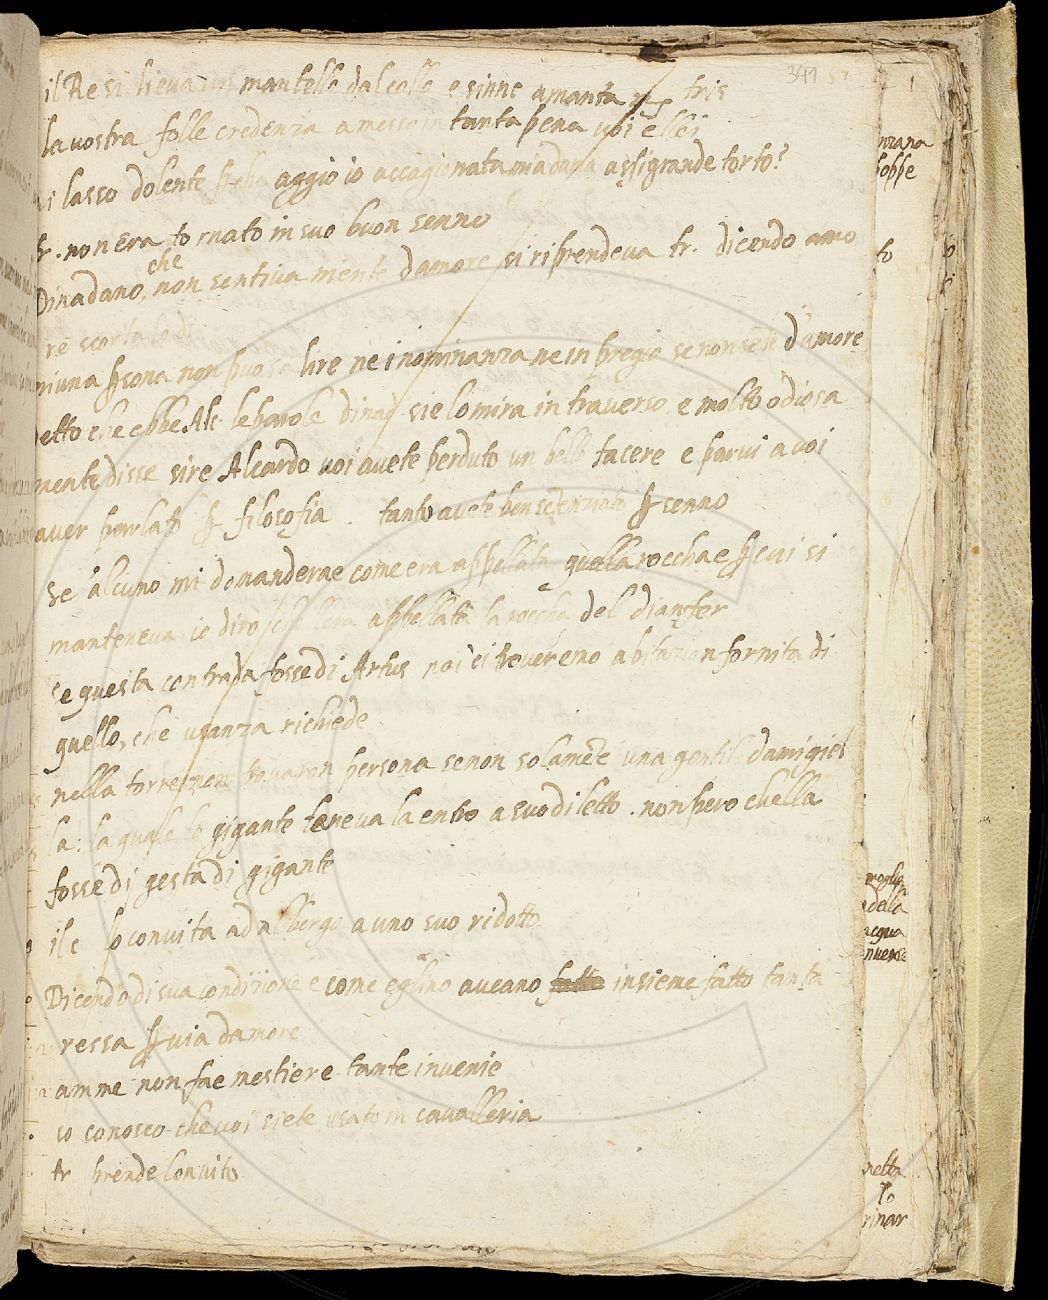 341 57
il Re si lieva un mantello dal collo e sinne amanta tris
la vostra folle credenza a messo in tanta pena voi e llei
lasso dolente aggio io accagionata mia dama assi grande torto?
tr. non era tornato in suo buon senno
che
Dinadano, non sentiva mente damore si riprendeva tr. dicendo amo
re scorta lo di
niuna psona non puo salire ne i nominanza ne in pregio se non sete d'amore
detto che ebbe Alc. le parole dinad si e lo mira in traverso e molto odiosa
mente disse sire Alcardo voi avete perduto un bello tacere e parvi a voi
aver parlato p filosofia . tanto avete ben sentenziato p senno
se alcuno mi demanderae come era appellata quella roccha e p cui si
manteneva io diro che llera appellata la roccha del dianfer
se questa contrada fosse di Artus noi ci troveremo abitazion fornita di
quello, che usanza richiede
nella torre non trovaron persona se non solamete una gentil damigiel
la: la quale lo gigante teneva la entro a suo diletto. non pero chella
fosse di gesta di gigante
il c lo convita ad albergo a uno suo ridotto
Dicendo di sua condizione e come eglino aveano fatto insieme fatto tanta
ressa p via damore
amme non fae mestiere tante invenie
io conosco che voi siete usato in cavalleria
tr prende lonvito
nzana
bobpe
to
moglie
della
acqua
nvense
netta
lo
rinar